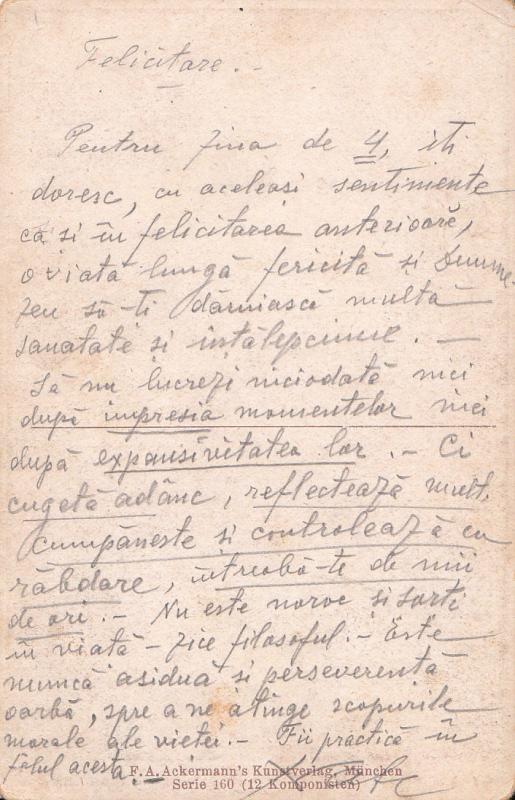 Felicitare. -
Pentru ziua de 4, iti
doresc, cu aceleasi sentimente
ca si in felicitarea anterioară,
o viată lungă fericită și Dumne-
zeu să-ti dăruiască multă
sanatate si intălepciune. -
Să nu lucrezi niciodată nici
după impresia momentelor nici
după expansivitatea lor. - Ci
cugetă adânc, reflectează mult,
cumpăneste si controlează cu
răbdare, intreabă-te de mii
de ori. - Nu este noroc si sorti
in viată - zice filosoful. - Este
muncă asiduă si perseverentă
oarbă, spre a ne atinge scopurile
morale ale vietei. - Fii practică in
felul acesta. -
F. A. Ackermann's Kunstverlag, München
Serie 160 (12 Komponisten)